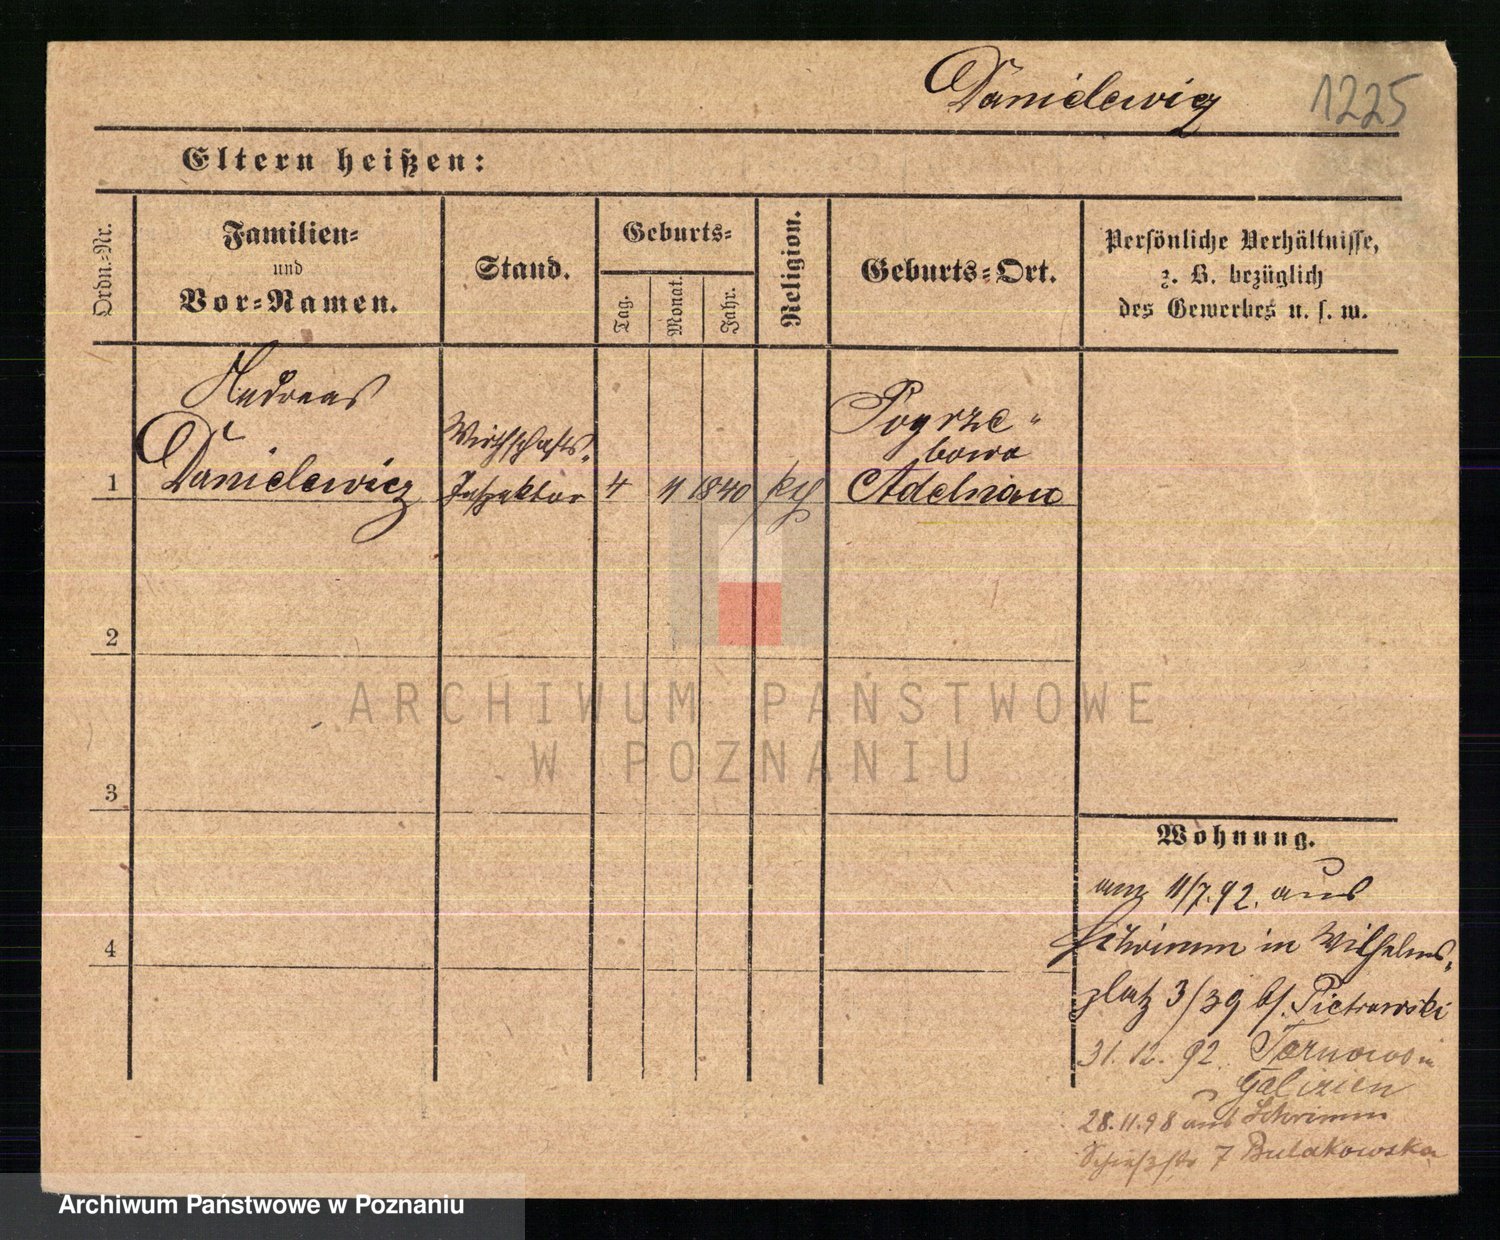 Danielewicz 1225
Eltern heißen:
Ordn.-Nr.
Familien-
und
Vor-Namen.
Stand.
Geburts-
Tag.
Monat.
Jahr.
Religion.
Geburts-Ort.
Persönliche Verhältnisse,
z. B. bezüglich
des Gewerbes u. s. w.
Andreas
Danielewicz
Wirthschafts-
Inspektor
1
4
11
1840
Pogrze-
bowo
Adelnau
2
3
4
ARCHIWUM PAŃSTWOWE
W POZNANIU
Wohnung.
am 11/7. 92. aus
Schrimm in Wilhelms-
platz 3/39 b/. Pietrowski
31. 12. 92. Tarnowo in
Galizien
28.11.98 aus Schrimm
Schießstr 7 Bulakowska
Archiwum Państwowe w Poznaniu